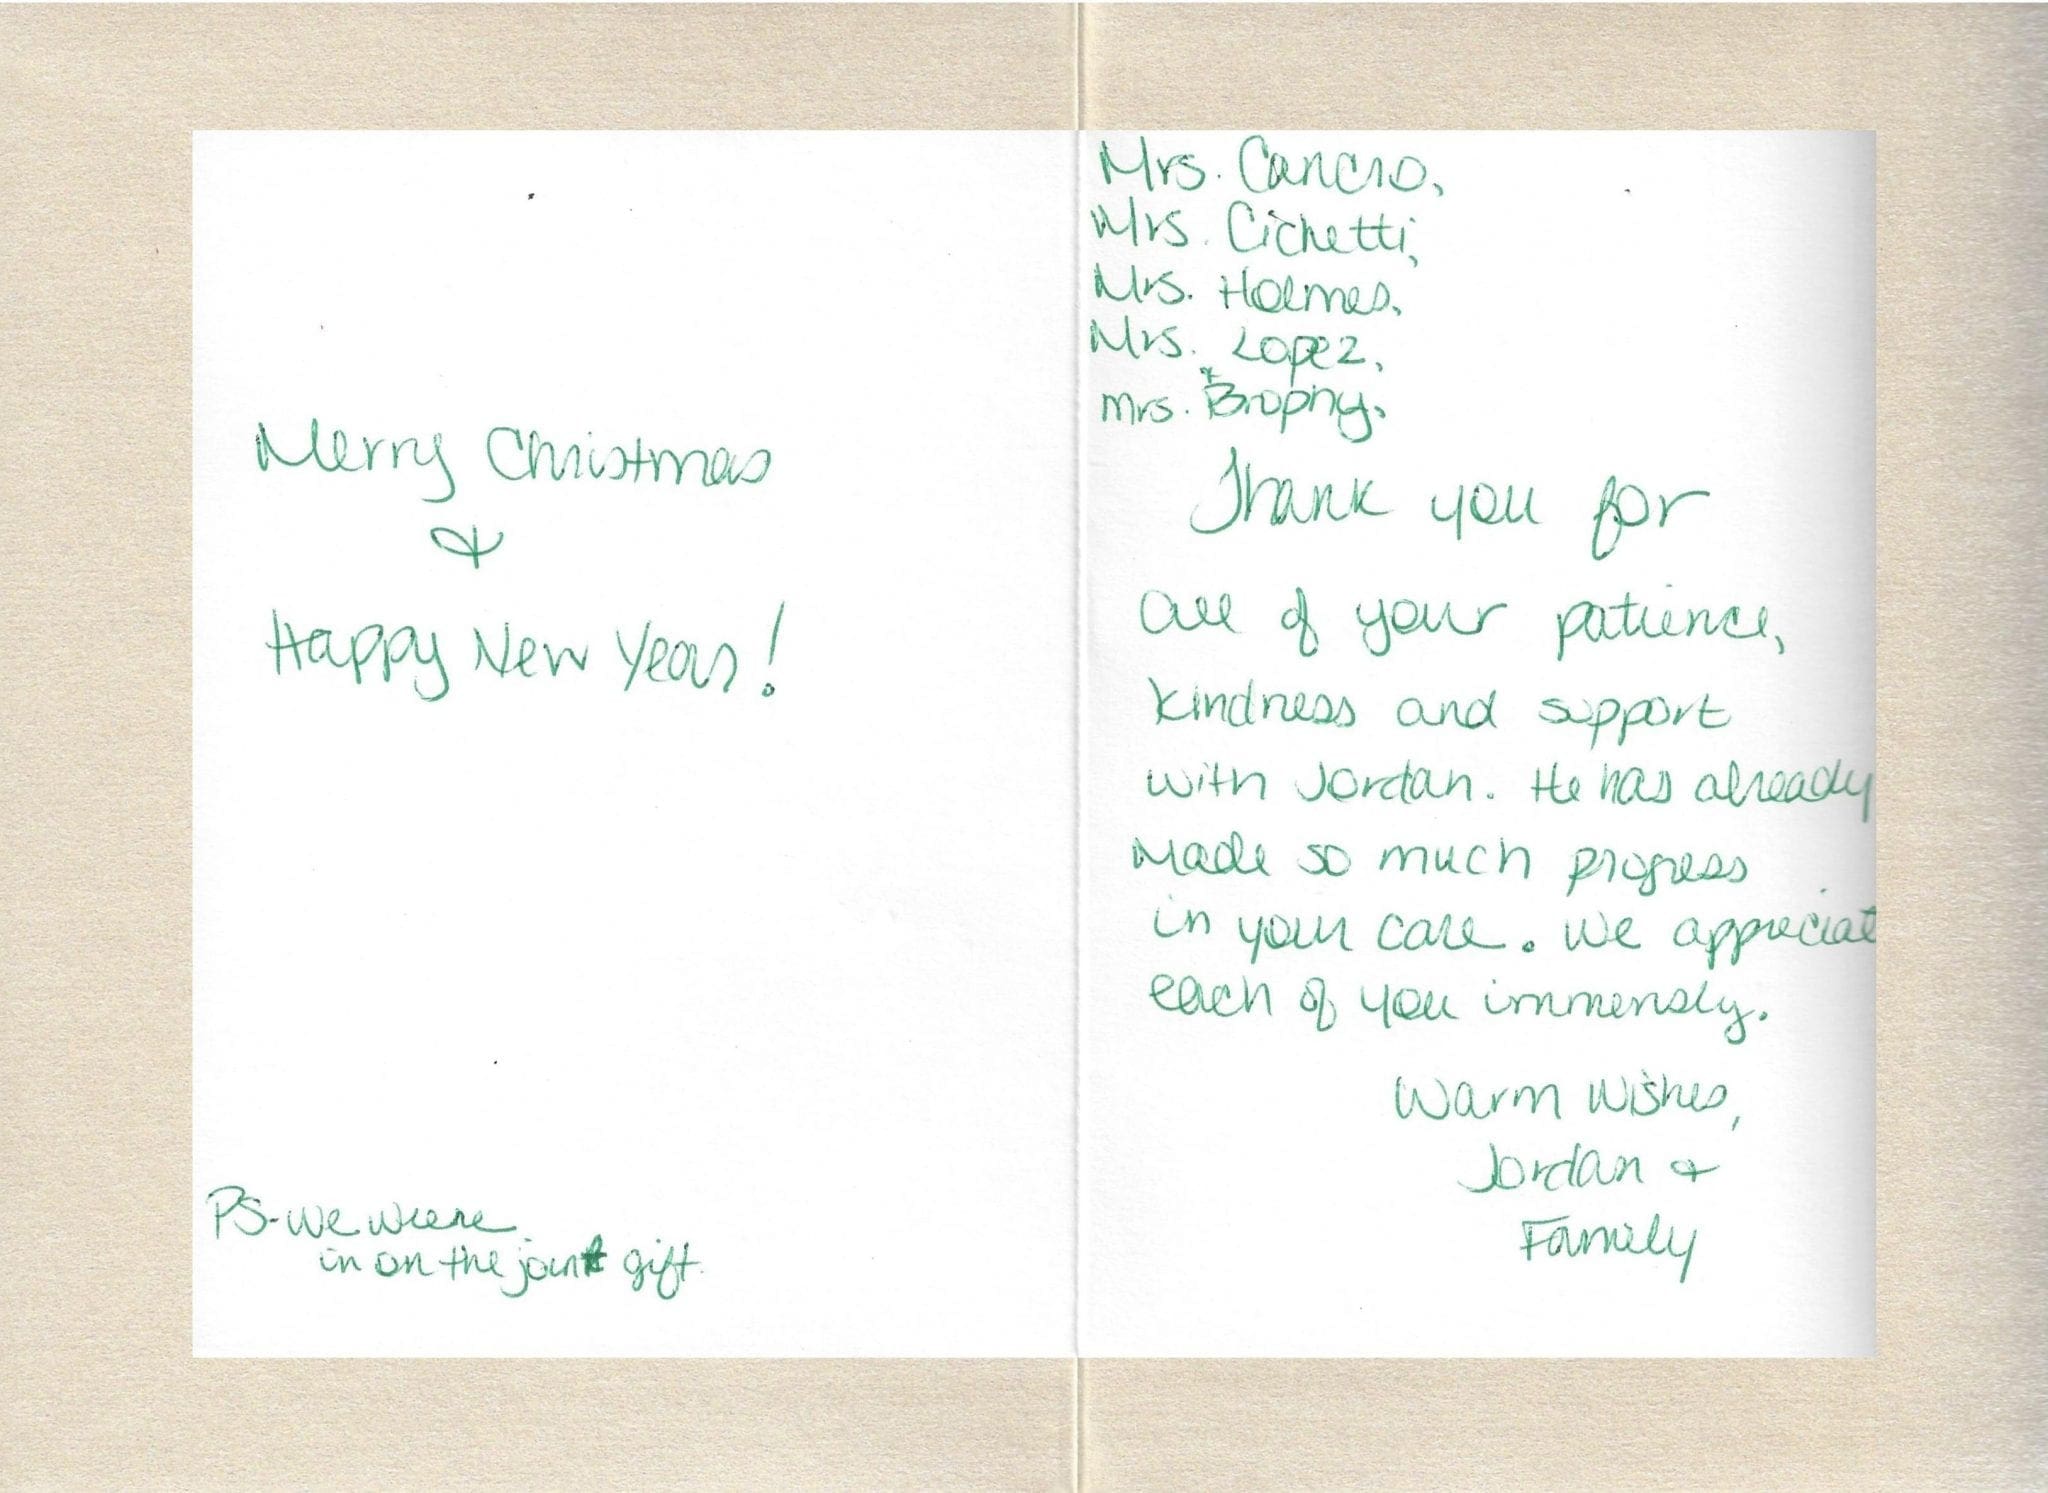 Merry Christmas
&
Happy New Year!
PS-We were
in on the joint gift.
Mrs. Cancro,
Mrs. Cichetti,
Mrs. Holmes,
Mrs. Lopez,
mrs. Brophy,
Thank you for
all of your patience,
kindness and support
with Jordan. He has already
made so much progress
in your care. We appreciat
each of you immensly.
Warm Wishes,
Jordan &
Family